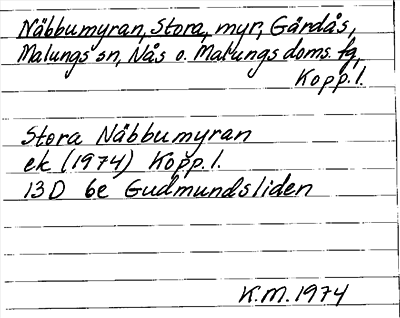 Näbbumyran, Stora, myr, Gårdås,
Malungs sn, Nås o. Malungs doms. fg,
Kopp. l.
Stora Näbbumyran
ek (1974) Kopp. l.
13D 6e Gudmundsliden
K.M. 1974